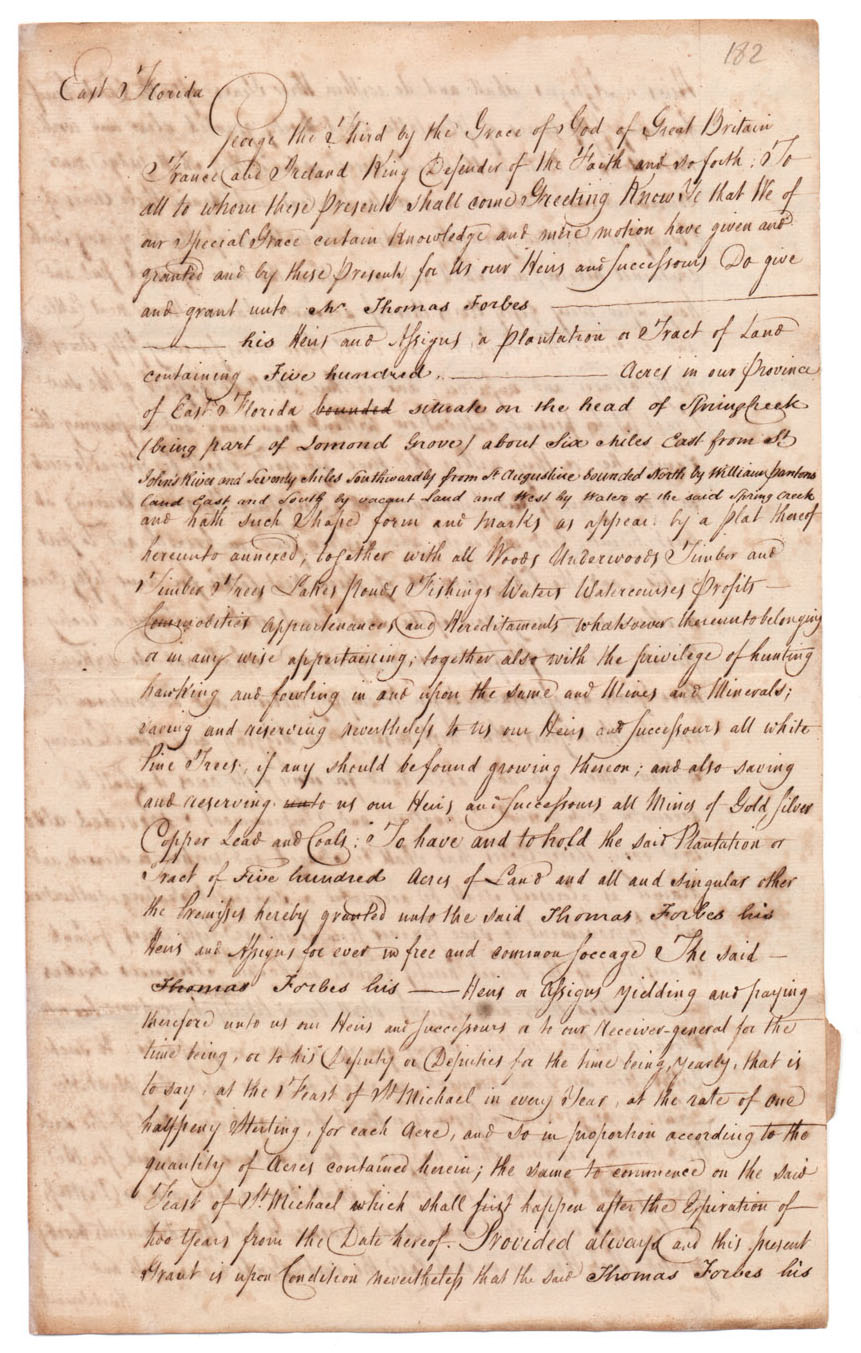 182
East Florida
George the Third by the Grace of God of Great Britain
France and Ireland King Defender of the Faith and so forth; To
all to whom these Presents shall come Greeting Know Ye that We of
our Special Grace certain Knowledge and mere motion have given and
granted and by these Presents for Us our Heirs and Successours Do give
and grant unto Mr Thomas Forbes
his Heirs and Assigns, a Plantation or Tract of Land
containing Five hundred. Acres in our Province
of East Florida bounded situate on the head of Spring Creek
(being part of Lomond Grove) about Six Miles East from St
Johns River and Seventy Miles Southwardly from St Augustine bounded North by William Pantons
Land East and South by vacant Land and West by Water of the said Spring Creek
and hath such Shape form and Marks as appear by a plat thereof
hereunto annexed, together with all Woods Underwoods Timber and
Timber Trees Lakes Ponds Fishings Waters Watercourses Profits
Commodities Appurtenances and Hereditaments whatsoever thereunto belonging
or in any wise appertaining; together also with the privilege of hunting
hawking and fowling in and upon the same and Mines and Minerals;
saving and reserving nevertheless to us our Heirs and Successours all white
Pine Trees, if any should be found growing thereon; and also saving
and reserving unto us our Heirs and Successours all Mines of Gold, Silver
Copper Lead and Coals; To have and to hold the said Plantation or
Tract of Five hundred Acres of Land and all and singular other
the Premisses hereby granted unto the said Thomas Forbes his
Heirs and Assigns for ever in free and common soccage The said
Thomas Forbes his Heirs or Assigns yielding and paying
therefore unto us our Heirs and Successours or to our Receiver-general for the
time being, or to his Deputy or Deputies for the time being, yearly, that is
to say, at the Feast of St. Michael in every Year, at the rate of one
halfpeny Sterling, for each Acre, and so in proportion according to the
quantity of Acres contained herein; the same to commence on the said
Feast of St. Michael which shall first happen after the Expiration of
two Years from the Date hereof. Provided always and this present
Grant is upon Condition nevertheless that the said Thomas Forbes his